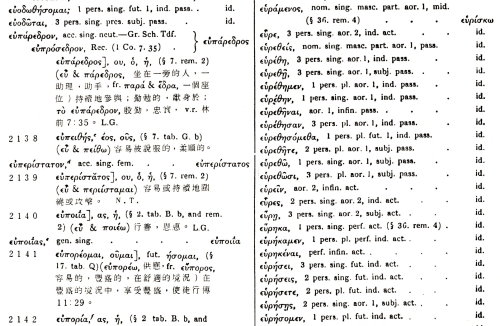 εὐοδωθήσομαι; 1 pers. sing. fut. 1, ind. pass. . id.
εὐοδῶται, 3 pers. sing. pres. subj. pass. . id.
εὐπάρεδρον, acc. sing. neut.—Gr. Sch. Tdf. } εὐπάρεδρος
εὐπρόσεδρον, Rec. (1 Co. 7. 35) .
εὐπάρεδρος], ου, ὁ, ἡ, (§ 7. rem. 2)
(εὖ & πάρεδρος, 坐在一旁的人,一
助理,助手, fr. παρά & ἕδρα, 一個座
位) 持續地參與;勤勉的,獻身於;
τὸ εὐπάρεδρον, 殷勤,忠實, v.r. 林
前 7:35. L.G.
2138 εὐπειθής,ʹ έος, οῦς, (§ 7. tab. G. b)
(εὖ & πείθω) 容易被說服的,柔順的。
εὐπερίστατον,ʹ acc. sing. fem. . εὐπερίστατος
2139 εὐπερίστᾰτος], ου, ὁ, ἡ, (§ 7. rem. 2)
(εὖ & περιΐσταμαι) 容易或持續地圍
繞或攻擊。 N.T.
2140 εὐποιΐα], ας, ἡ, (§ 2. tab. B. b, and rem.
2) (εὖ & ποιέω) 行善,恩惠。 L.G.
εὐποιΐας,ʹ gen. sing. . . . εὐποιΐα
2141 εὐπορέομαι, οῦμαι], fut. ήσομαι, (§
17. tab. Q)(εὐπορέω, 供應, fr. εὔπορος,
容易的,豐盛的,在舒適的境況) 在
豐盛的境況中,享受豐盛, 使徒行傳
11:29.
2142 εὐπορία,ʹ ας, ἡ, (§ 2 tab. B. b, and
εὑράμενος, nom. sing. masc. part. aor. 1, mid.
(§ 36. rem. 4) . . . εὑρίσκω
εὗρε, 3 pers. sing. aor. 2, ind. act. . . id.
εὑρεθείς, nom. sing. masc. part. aor. 1, pass. id.
εὑρέθη, 3 pers. sing. aor. 1, ind. pass. . id.
εὑρεθῇ, 3 pers. sing. aor. 1, subj. pass. . id.
εὑρέθημεν, 1 pers. pl. aor. 1, ind. pass. . id.
εὑρέθην, 1 pers. sing. aor. 1, ind. pass. . id.
εὑρεθῆναι, aor. 1, infin. pass. . . id.
εὑρέθησαν, 3 pers. pl. aor. 1, ind. pass. . id.
εὑρεθησόμεθα, 1 pers. pl. fut. 1, ind. pass. id.
εὑρεθῆτε, 2 pers. pl. aor. 1, subj. pass. . id.
εὑρεθῶ, 1 pers. sing. aor. 1, subj. pass. . id.
εὑρεθῶσι, 3 pers. pl. aor. 1, subj. pass. . id.
εὑρεῖν, aor. 2, infin. act. . . . id.
εὗρες, 2 pers. sing. aor. 2, ind. act. . id.
εὕρῃ, 3 pers. sing. aor. 2, subj. act. . id.
εὕρηκα, 1 pers. sing. perf. act. (§ 36. rem. 4) . id.
εὑρήκαμεν, 1 pers. pl. perf. ind. act. . id.
εὑρηκέναι, perf. infin. act. . . id.
εὑρήσει, 3 pers. sing. fut. ind. act. . id.
εὑρήσεις, 2 pers. sing. fut. ind. act. . id.
εὑρήσετε, 2 pers. pl. fut. ind. act. . id.
εὑρήσῃς, 2 pers. sing. aor. 1, subj. act. . id.
εὑρήσομεν, 1 pers. pl. fut. ind. act. . id.